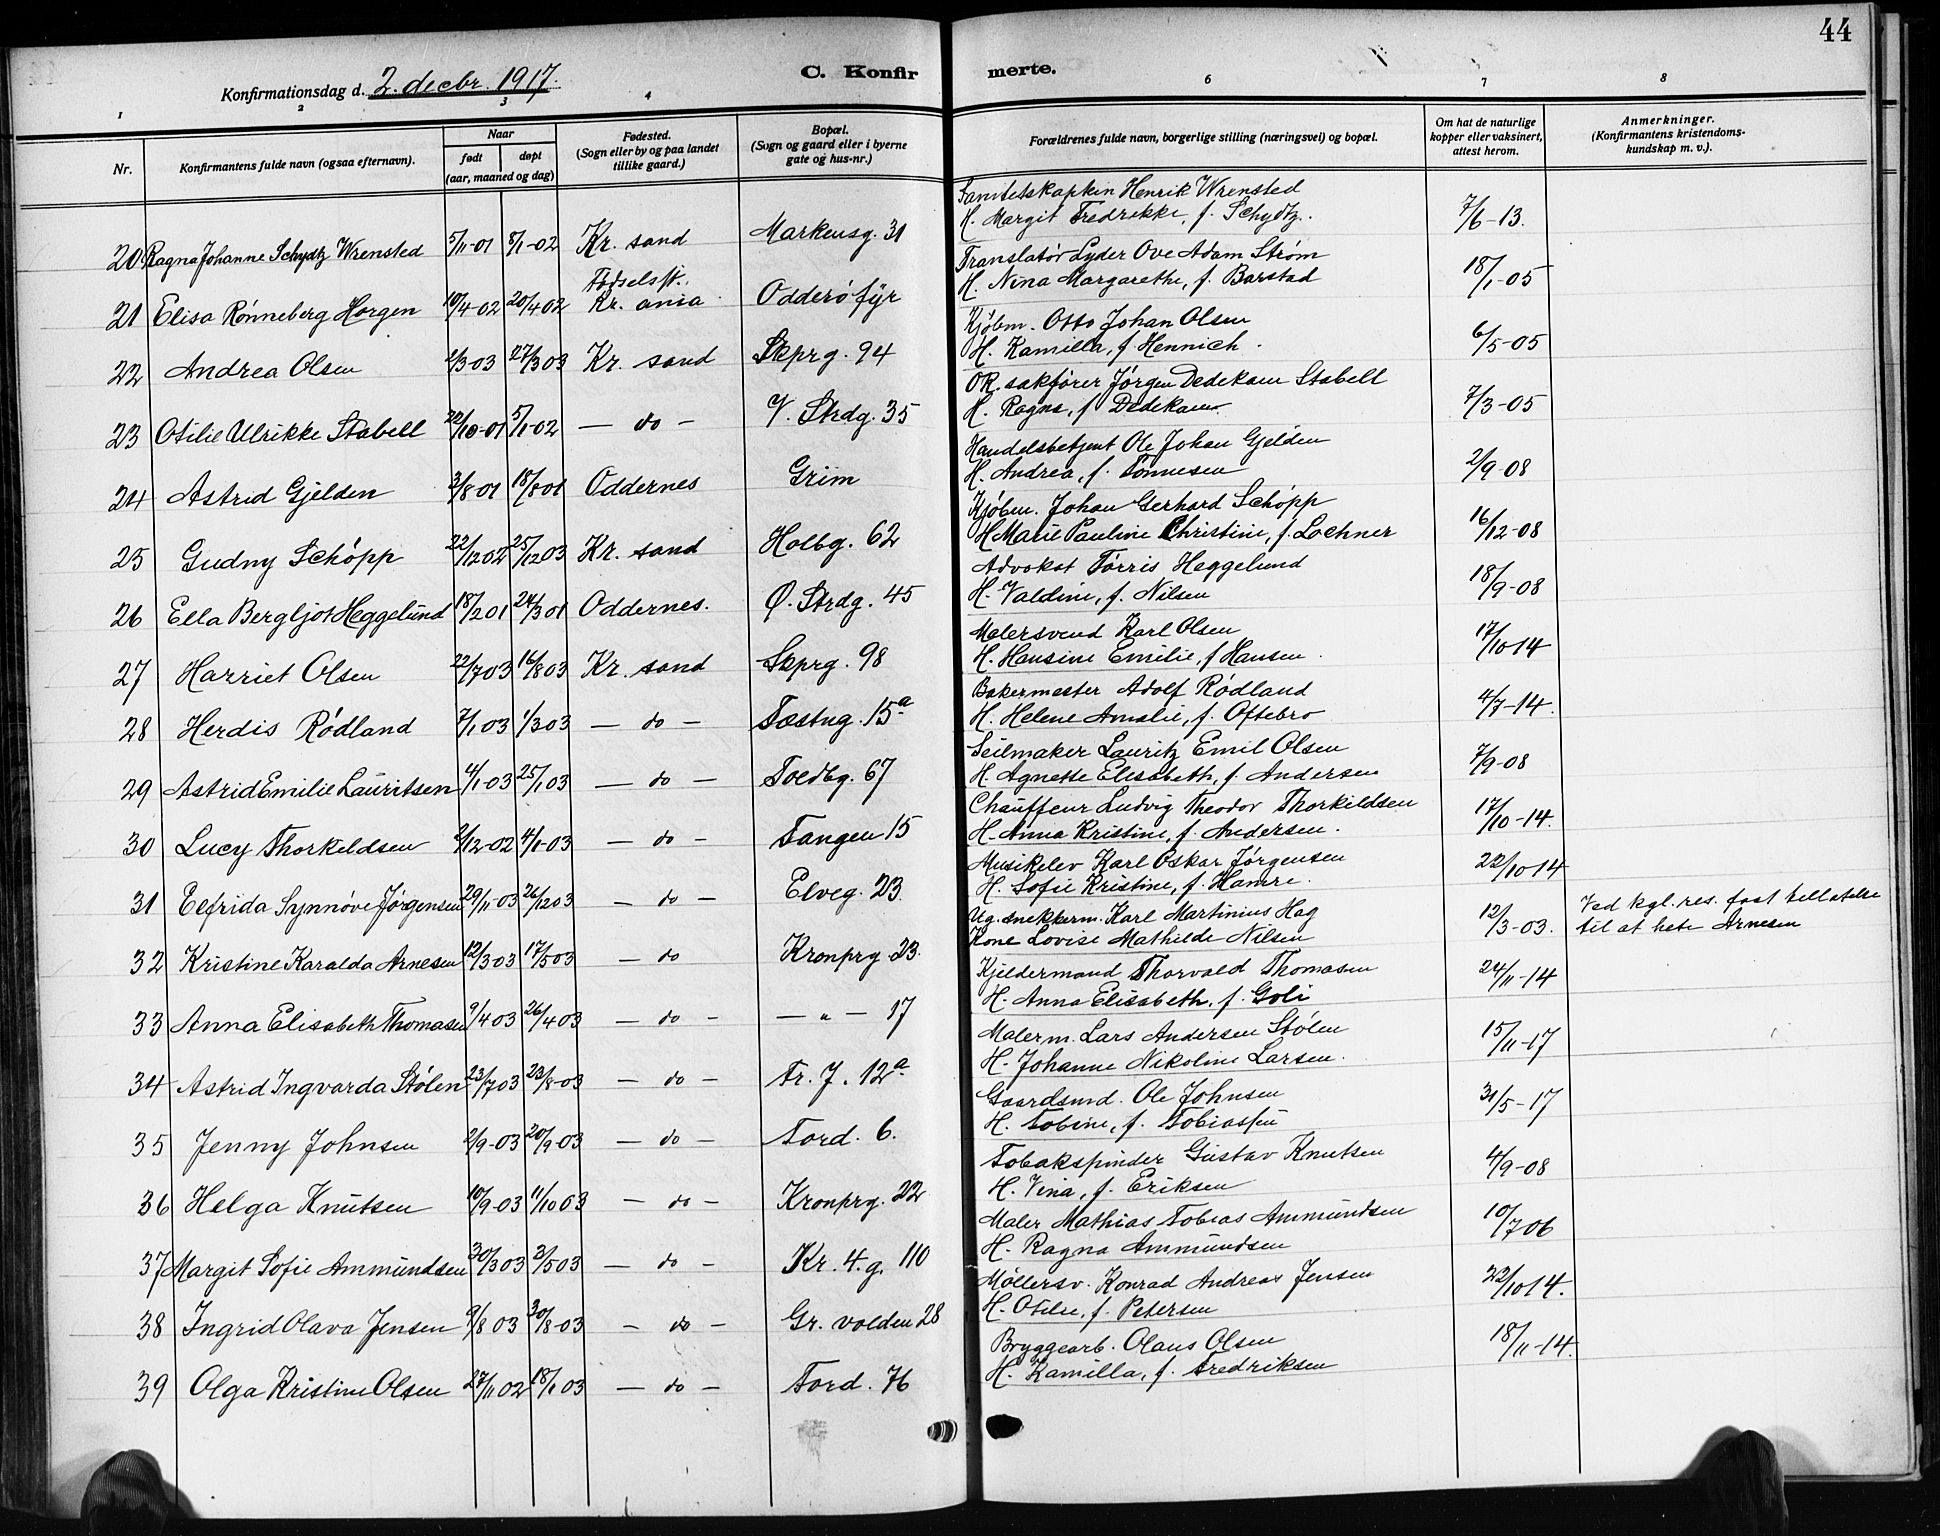 44
Konfirmationsdag d. 2. decbr. 1917.
C. Konfirmerte.
1 2 3 4 6 7 8
Nr.
Konfirmantens fulde navn (ogsaa efternavn).
Naar
født
døpt
(aar, maaned og dag)
Fødested.
(Sogn eller by og paa landet
tillike gaard.)
Bopæl.
(Sogn og gaard eller i byerne
gate og hus-nr.)
Forældrenes fulde navn, borgerlige stilling (næringsvei) og bopæl.
Om hat de naturlige
kopper eller vaksinert,
attest herom.
Anmerkninger.
(Konfirmantens kristendoms-
kundskap m. v.).
Sanitetskaptein Henrik Wrensted
20 Ragna Johanne Schydtz Wrensted 5/11-01 5/1-02 Kr. sand Markensg. 31 H. Margit Fredrikke, f. Schydtz. 7/6-13.
Fødselsst. Translatør Lyder Ove Adam Strøm
21 Elisa Rønneberg Horgen 10/4-02 20/4 02 Kr. ania Odderø fyr H. Nina Margarethe, f. Barstad 18/1-05
Kjøbm. Otto Johan Olsen
22 Andrea Olsen 2/3-03 27/3 03 Kr. sand Skprg. 94 H. Kamilla, f. Hennich. 6/5-05
OR. sakfører Jørgen Dedekam Stabell
23 Otilie Ulrikke Stabell 22/10-01 5/1-02 — do — V. Strdg. 35 H. Ragna, f. Dedekam 7/3-05
Handelsbetjent Ole Johan Gjelden
24 Astrid Gjelden 3/8 01 18/8 01 Oddernes Grim H. Andrea, f. Tønnesen 2/9-08
Kjøbm. Johan Gerhard Schøpp
25 Gudny Schøpp 22/12 02 25/12 03 Kr. sand Holbg. 62 H Marie Pauline Christine, f. Lochner 16/12-08
Advokat Tørris Heggelund
26 Ella Bergljot Heggelund 18/2 01 24/3 01 Oddernes. Ø. Strdg. 45 H. Valdine, f. Nilsen 18/9-08
Malersvend Karl Olsen
27 Harriet Olsen 22/7 03 16/8 03 Kr. sand Skprg. 98 H. Hansine Emilie, f Hansen. 17/10 14
Bakermester Adolf Rødland
28 Herdis Rødland 7/1 03 1/3 03 — do — Fæstng. 15a H. Helene Amalie, f. Oftebro 4/7-14.
Seilmaker Lauritz Emil Olsen
29 Astrid Emilie Lauritsen 4/1-03 25/1 03 — do — Toldbg. 67 H. Agnette Elisabeth, f. Andersen 7/9-08
Chauffeur Ludvig Theodor Thorkildsen
30 Lucy Thorkildsen 2/12-02 4/1-03 — do — Tangen 15 H. Anna Kristine, f. Andersen. 17/10-14.
Musikelev Karl Oskar Jørgensen
31 Elfrida Synnøve Jørgensen 29/11-03 26/12 03 — do — Elveg. 23. H. Sofie Kristine, f. Hamre. 22/10 14
Ug. snekkerm. Karl Martinius Hag Ved kgl. res. faat tillatelse
32 Kristine Haralda Arnesen 12/3 03 17/5 03 — do Kronprg 23. Kone Lovise Mathilde Nilsen 12/3-03. til at hete Arnesen
Kjeldermand Thorvald Thomasen
33 Anna Elisabeth Thomasen 9/4 03 26/4 03 — do — — " — 17 H. Anna Elisabeth, f. Goli 24/11-14
Malerm. Lars Andersen Stølen
34 Astrid Ingvarda Stølen 23/7 03 23/8-03 — do — Fr. J. 12a H. Johanne Nikoline Larsen. 15/11-17
Gaardsmd. Ole Johnsen
35 Jenny Johnsen 2/9-03 20/9-03 — do — Tord. 6. H. Tobine, f. Tobiassen 31/5-17
Tobakspinder Gustav Knutsen
36 Helga Knutsen 10/9-03 11/10 03 — do — Kronprg. 22 H. Vina, f. Eriksen 4/9-08
Maler Mathias Tobias Ammundsen
37 Margit Sofie Ammundsen 30/3 03 3/5 03 — do — Kr. 4. g. 110 H. Ragna Ammundsen 10/7 06
Møllersv. Konrad Andreas Jensen
38 Ingrid Olava Jensen 9/8 03 30/8-03 — do — Gr. volden 28 H. Otilie, f. Petersen 22/10 14.
Bryggearb. Olaus Olsen
39 Olga Kristine Olsen 27/11 02 18/1 03 — do — Tord. 76 H. Kamilla, f. Fredriksen 18/11-14.